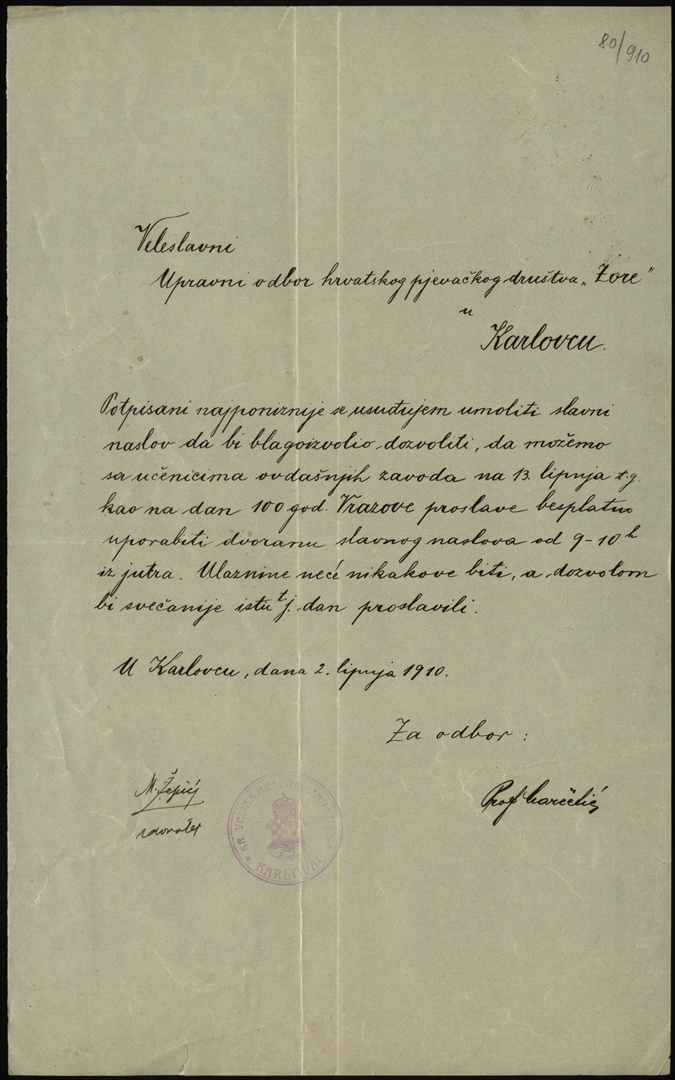 80/910
Veleslavni
Upravni odbor hrvatskog pjevačkog društva „Zore"
u
Karlovcu.
Potpisani najponiznije se usuđujem umoliti slavni
naslov da bi blagoizvolio dozvoliti, da možemo
sa učenicima ovdašnjih zavoda na 13. lipnja t.g.
kao na dan 100 god. Vrazove proslave besplatno
uporabiti dvoranu slavnog naslova od 9-10h
iz jutra. Ulaznine neće nikakove biti, a dozvolom
bi svečanije istu tj. dan proslavili.
U Karlovcu, dana 2. lipnja 1910.
Za odbor:
M. Žepić
Prof.
KR. VELIKA
KARLOVAC